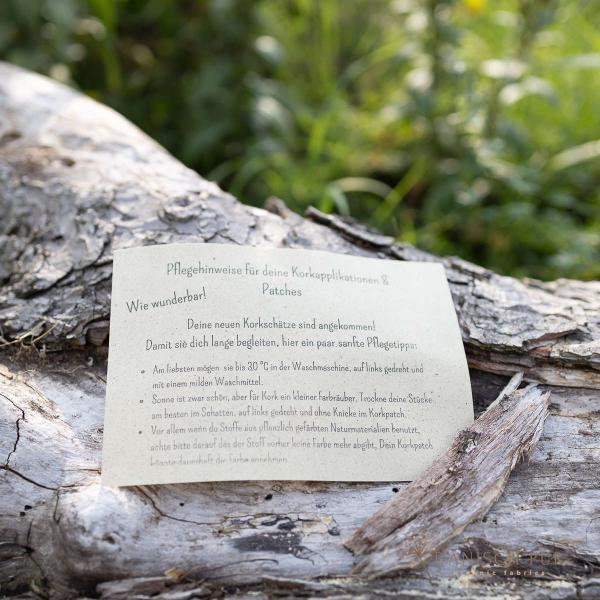 Pflegehinweise für deine Korkapplikationen &
Patches
Wie wunderbar!
Deine neuen Korkschätze sind angekommen!
Damit sie dich lange begleiten, hier ein paar sanfte Pflegetipps:
• Am liebsten mögen sie bis 30 °C in der Waschmaschine, auf links gedreht und
mit einem milden Waschmittel.
• Sonne ist zwar schön, aber für Kork ein kleiner Farbräuber. Trockne deine Stücke
am besten im Schatten, auf links gedreht und ohne Knicke im Korkpatch.
• Vor allem wenn du Stoffe aus pflanzlich gefärbten Naturmaterialien benutzt,
achte bitte darauf das der Stoff vorher keine Farbe mehr abgibt, Dein Korkpatch
könnte dauerhaft die Farbe annehmen.
organic fabrics